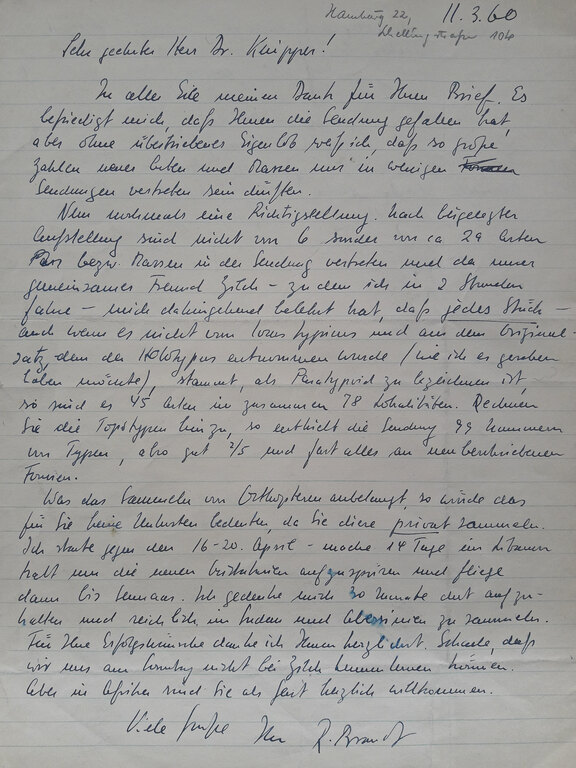 Hamburg 22, 11.3.60
104
Sehr geehrter Herr Dr. Knipper!
In aller Eile meinen Dank für Ihren Brief. Es
befriedigt mich, daß Ihnen die Sendung gefallen hat,
aber ohne übertriebenes Eigenlob weiß ich, daß so große
Zahlen neuer Arten und Rassen nur in wenigen
Sendungen vertreten sein dürften.
Nun nochmals eine Richtigstellung. Nach beigelegter
Aufstellung sind nicht von 6 sondern von ca. 29 Arten
bezw. Rassen in der Sendung vertreten und da unser
gemeinsamer Freund Zilch – zu dem ich in 2 Stunden
fahre – mich dahingehend belehrt hat, daß jedes Stück –
auch wenn es nicht vom locus typicus und aus dem Original-
satz, dem der Holotypus entnommen wurde (wie ich es gesehen
haben möchte), stammt, als Paratypoid zu bezeichnen ist,
so sind es 45 Arten in zusammen 78 Lokalitäten. Rechnen
Sie die Topotypen hinzu, so enthält die Sendung 99 Nummern
von Typen, also gut 2/5 und fast alles an neubeschriebenen
Formen.
Was das Sammeln von Orthopteren anbelangt, so würde das
für Sie keine Unkosten bedeuten, da Sie diese privat sammeln.
Ich starte gegen den 16-20. April – mache 14 Tage im Libanon
halt um die neuen aufzuspüren und fliege
dann bis Sennaar. Ich gedenke mich 20 Monate dort aufzu-
halten und reichlich im Sudan und Abessinien zu sammeln.
Für Ihre Erfolgswünsche danke ich Ihnen herzlichst. Schade, daß
wir uns am Sonntag nicht bei Zilch kennenlernen können.
Aber in Afrika sind Sie als Gast herzlich willkommen.
Viele Grüße Ihr R. Brandt